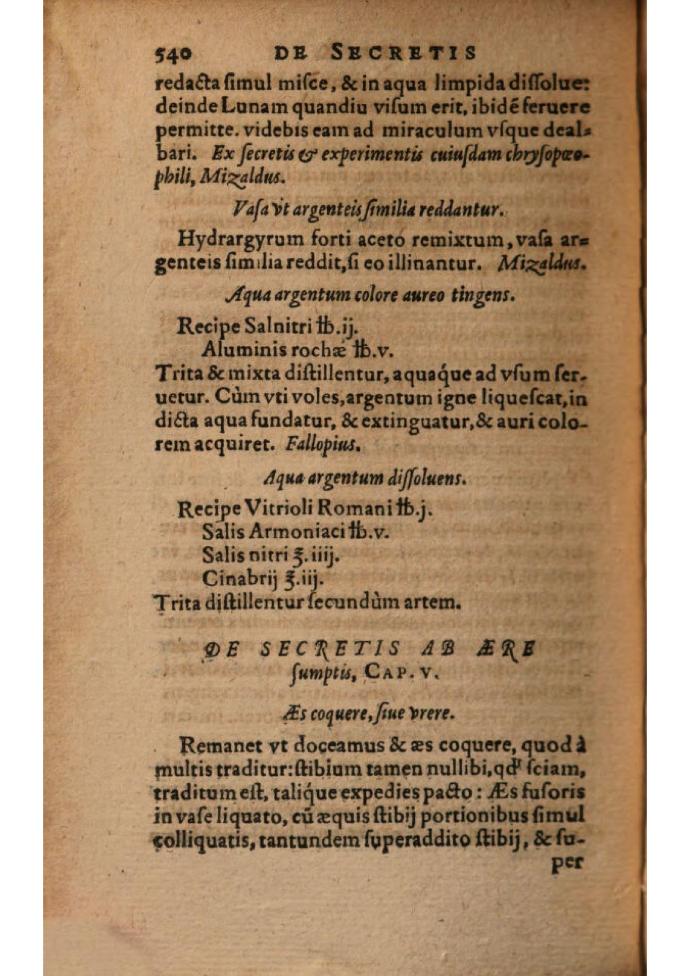 540 DE SECRETIS
redacta ſimul miſce, & in aqua limpida diſſolue:
deinde Lunam quandiu viſum erit, ibidē feruere
permitte. videbis eam ad miraculum vſque deal-
bari. Ex ſecretis & experimentis cuiuſdam chryſopœo-
phili, Mizaldus.
Vaſa vt argenteis ſimilia reddantur.
Hydrargyrum forti aceto remixtum, vaſa ar-
genteis ſimilia reddit, ſi eo illinantur. Mizaldus.
Aqua argentum colore aureo tingens.
Recipe Salnitri ℔.ij.
Aluminis rochæ ℔.v.
Trita & mixta diſtillentur, aquaq́ue ad vſum ſer-
uetur. Cùm vti voles, argentum igne liqueſcat, in
dicta aqua fundatur, & extinguatur, & auri colo-
rem acquiret. Fallopius.
Aqua argentum diſſoluens.
Recipe Vitrioli Romani ℔.j.
Salis Armoniaci ℔.v.
Salis nitri ℥.iiij.
Cinabrij ℥.iij.
Trita diſtillentur ſecundùm artem.
DE SECRETIS AB ÆRE
ſumptis, CAP. V.
Æs coquere, ſiue vrere.
Remanet vt doceamus & æs coquere, quod à
multis traditur: ſtibium tamen nullibi, qđ ſciam,
traditum eſt, taliq́ue expedies pacto: Æs fuſoris
in vaſe liquato, cū æquis ſtibij portionibus ſimul
colliquatis, tantundem ſuperaddito ſtibij, & ſu-
per